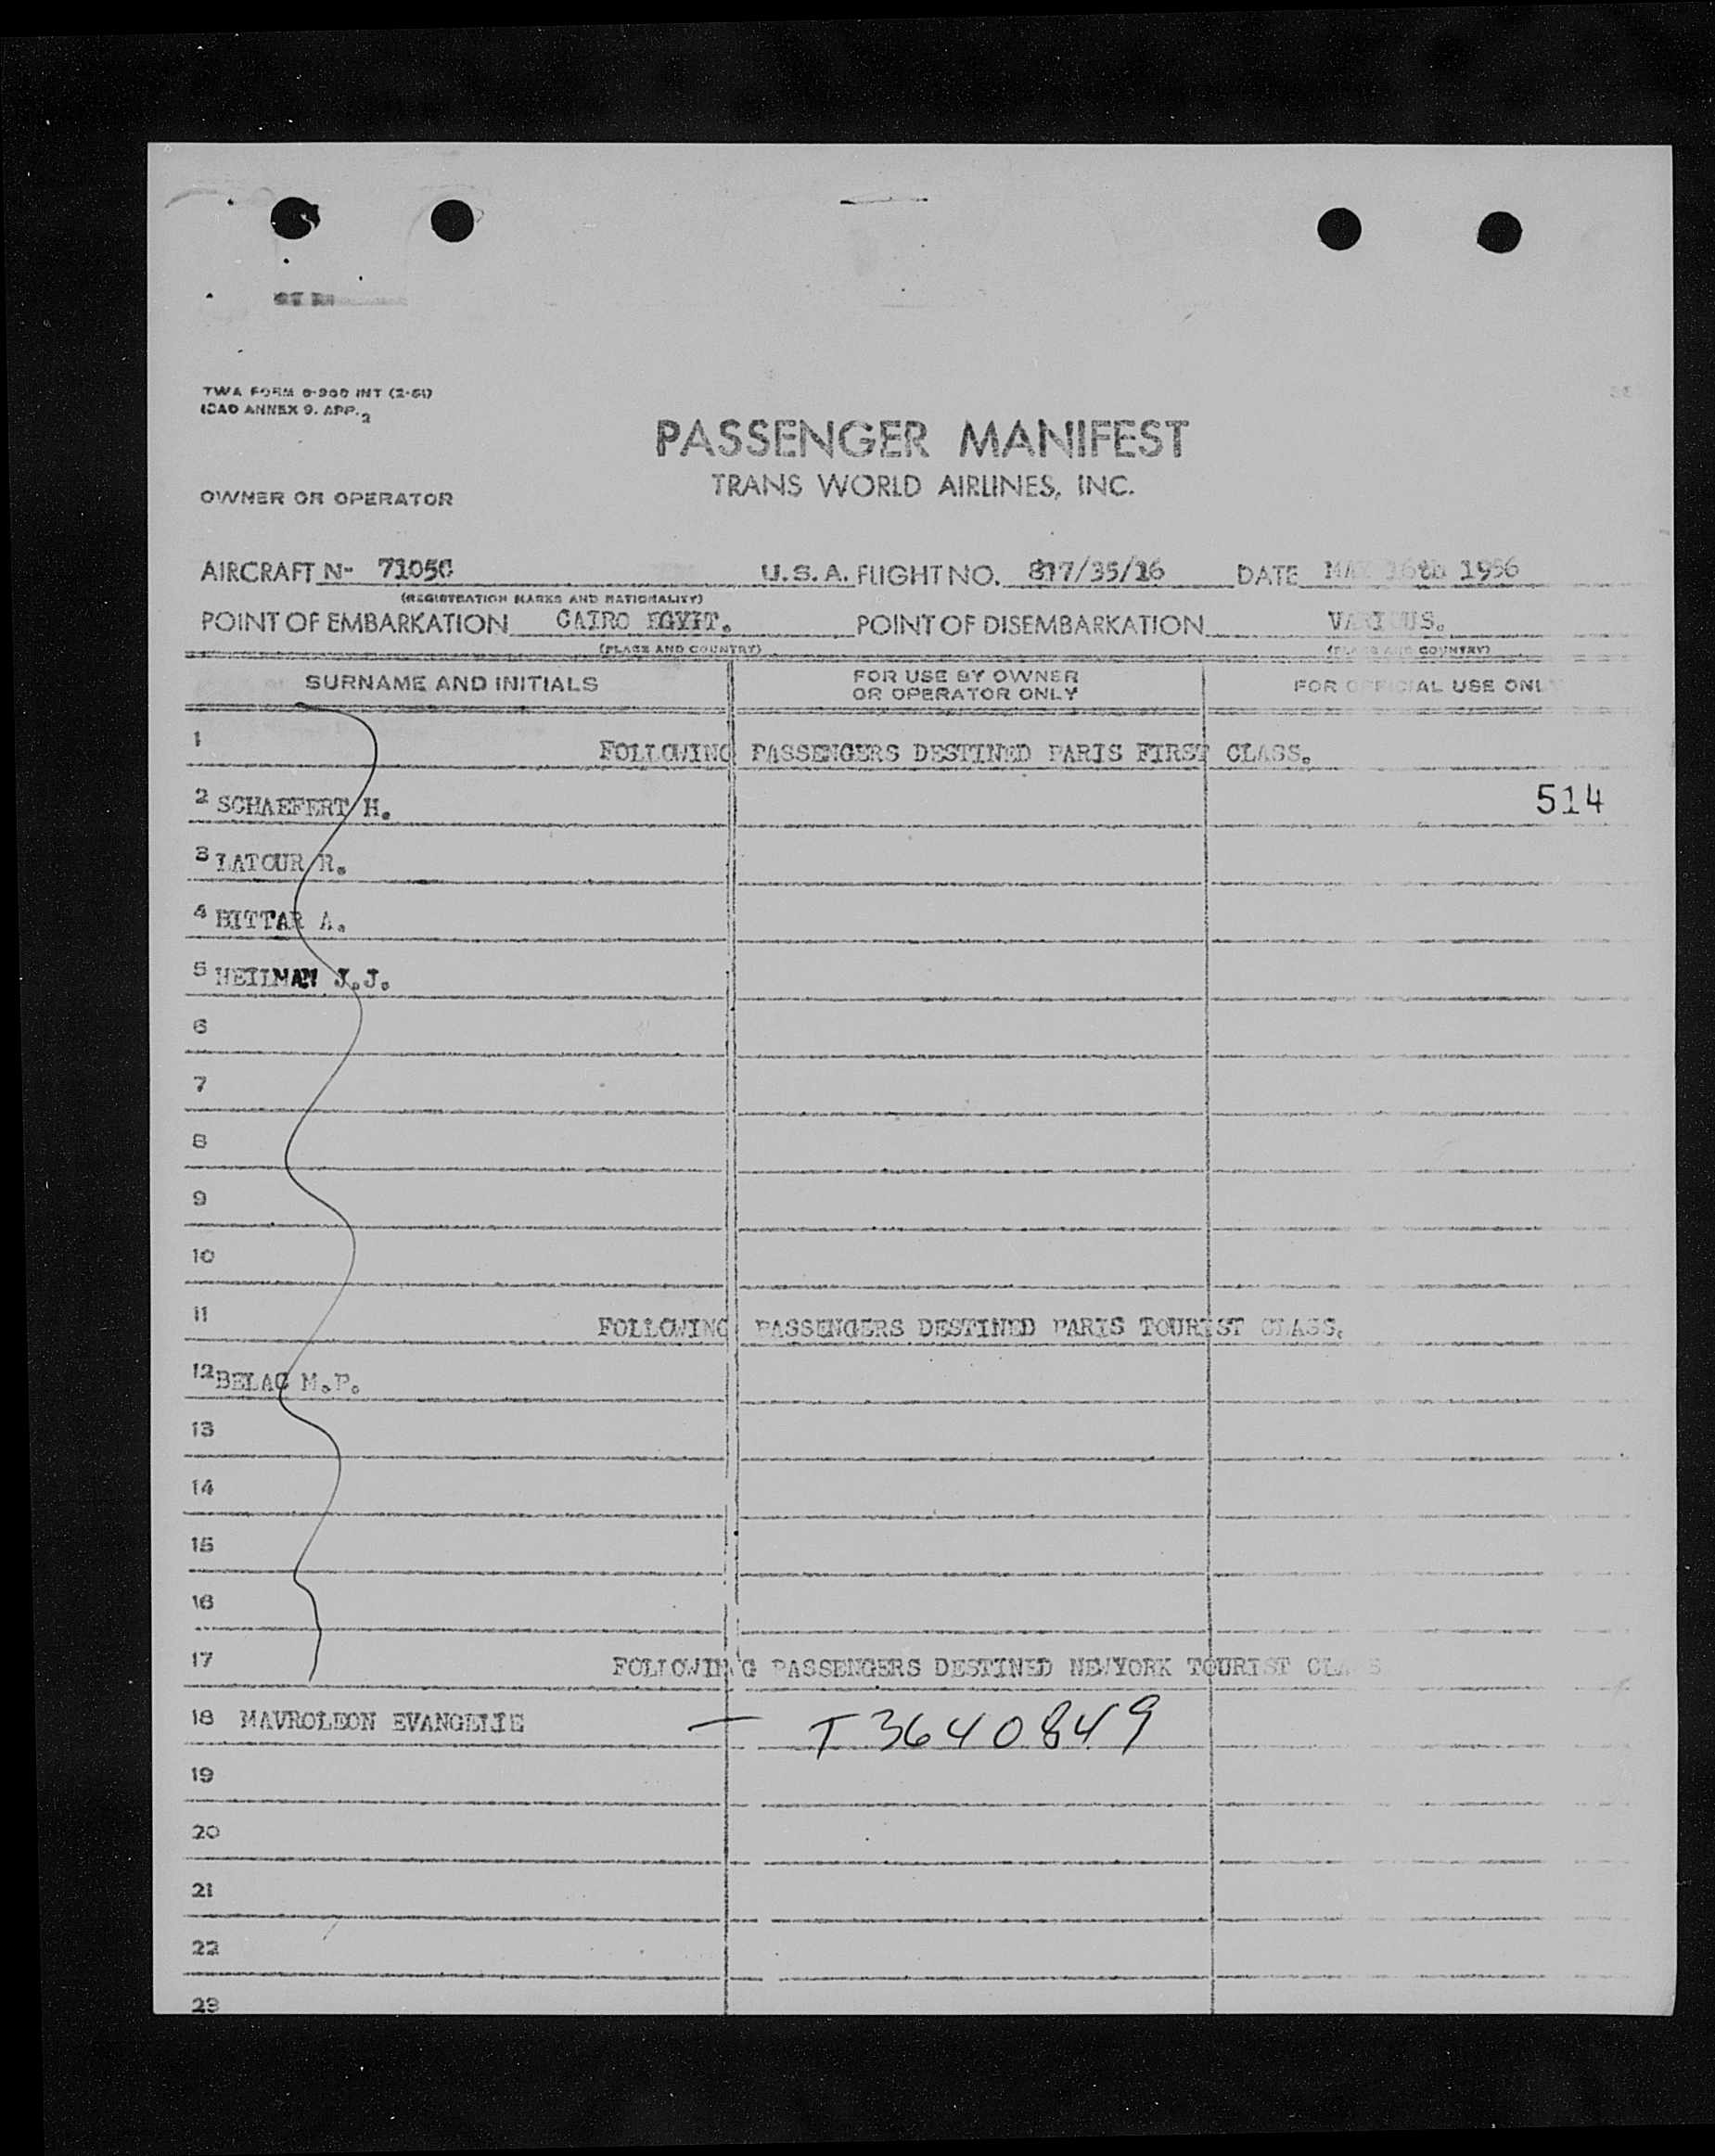 TWA FORM 0-900 INT (2-51)
ICAO ANNEX 9. APP. 2
PASSENGER MANIFEST
TRANS WORLD AIRLINES, INC.
OWNER OR OPERATOR
AIRCRAFT N- 7105C U.S.A. FLIGHT NO. 817/35/16 DATE MAY 16th 1956
(REGISTRATION MARKS AND NATIONALITY)
POINT OF EMBARKATION CAIRO EGYPT. POINT OF DISEMBARKATION VARIOUS.
(PLACE AND COUNTRY) (PLACE AND COUNTRY)
SURNAME AND INITIALS FOR USE BY OWNER OR OPERATOR ONLY FOR OFFICIAL USE ONLY
1 FOLLOWING PASSENGERS DESTINED PARIS FIRST CLASS.
2 SCHAEFERT H. 514
3 LATOUR R.
4 BITTAR A.
5 HEILMAN J.J.
6
7
8
9
10
11 FOLLOWING PASSENGERS DESTINED PARIS TOURIST CLASS.
12 BELAC M.P.
13
14
15
16
17 FOLLOWING PASSENGERS DESTINED NEWYORK TOURIST CLASS
18 MAVROLEON EVANGELIE — T3640849
19
20
21
22
23